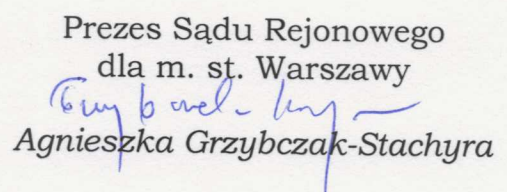 Prezes Sądu Rejonowego
dla m. st. Warszawy
Agnieszka Grzybczak-Stachyra